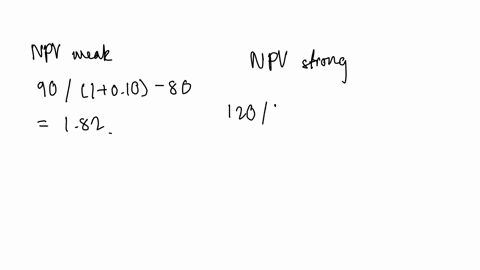 NPV weak
90 / (1+0.10) - 80
= 1.82.
NPV strong
120 /